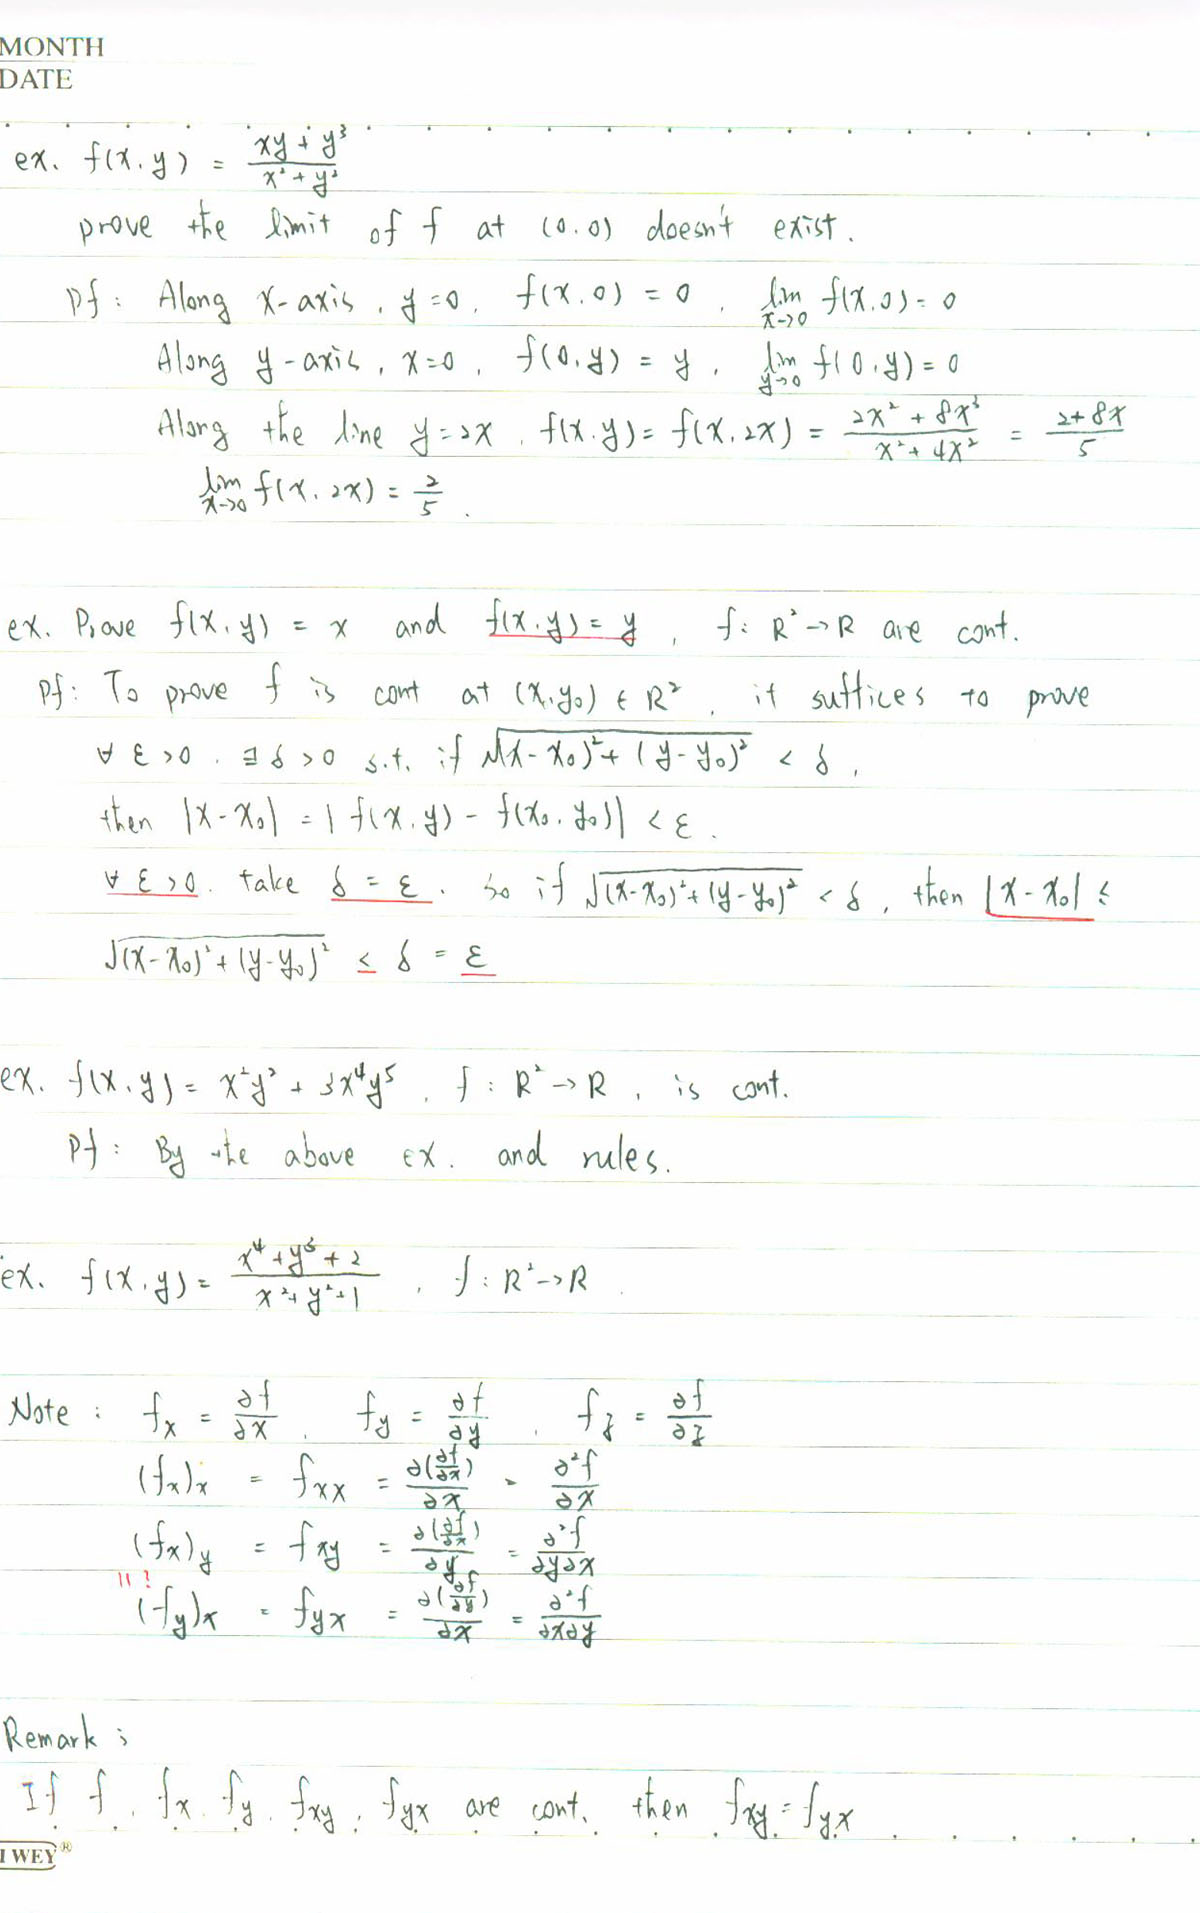 MONTH
DATE
ex. f(x,y) = (xy + y³)/(x² + y²)
prove the limit of f at (0,0) doesn't exist.
pf: Along x-axis, y=0, f(x,0) = 0, lim_{x→0} f(x,0) = 0
Along y-axis, x=0, f(0,y) = y, lim_{y→0} f(0,y) = 0
Along the line y=2x, f(x,y) = f(x,2x) = (2x² + 8x³)/(x² + 4x²) = (2+8x)/5
lim_{x→0} f(x,2x) = 2/5.
ex. Prove f(x,y) = x and f(x,y) = y, f: R² → R are cont.
pf: To prove f is cont at (x,y₀) ∈ R², it suffices to prove
∀ ε>0, ∃ δ>0 s.t. if √((x-x₀)² + (y-y₀)²) < δ,
then |x-x₀| = |f(x,y) - f(x₀,y₀)| < ε.
∀ ε>0. take δ = ε. So if √((x-x₀)² + (y-y₀)²) < δ, then |x-x₀| ≤
√((x-x₀)² + (y-y₀)²) ≤ δ = ε
ex. f(x,y) = x²y² + 3x⁴y⁵, f: R² → R, is cont.
pf: By the above ex. and rules.
ex. f(x,y) = (x⁴+y³+2)/(x²+y²+1), f: R² → R.
Note: f_x = ∂f/∂x, f_y = ∂f/∂y, f_z = ∂f/∂z
(f_x)_x = f_xx = ∂(∂f/∂x)/∂x = ∂²f/∂x
(f_x)_y = f_xy = ∂(∂f/∂x)/∂y = ∂²f/∂y∂x
|| ?
(f_y)_x = f_yx = ∂(∂f/∂y)/∂x = ∂²f/∂x∂y
Remark:
If f, f_x, f_y, f_xy, f_yx are cont. then f_xy = f_yx
I WEY®